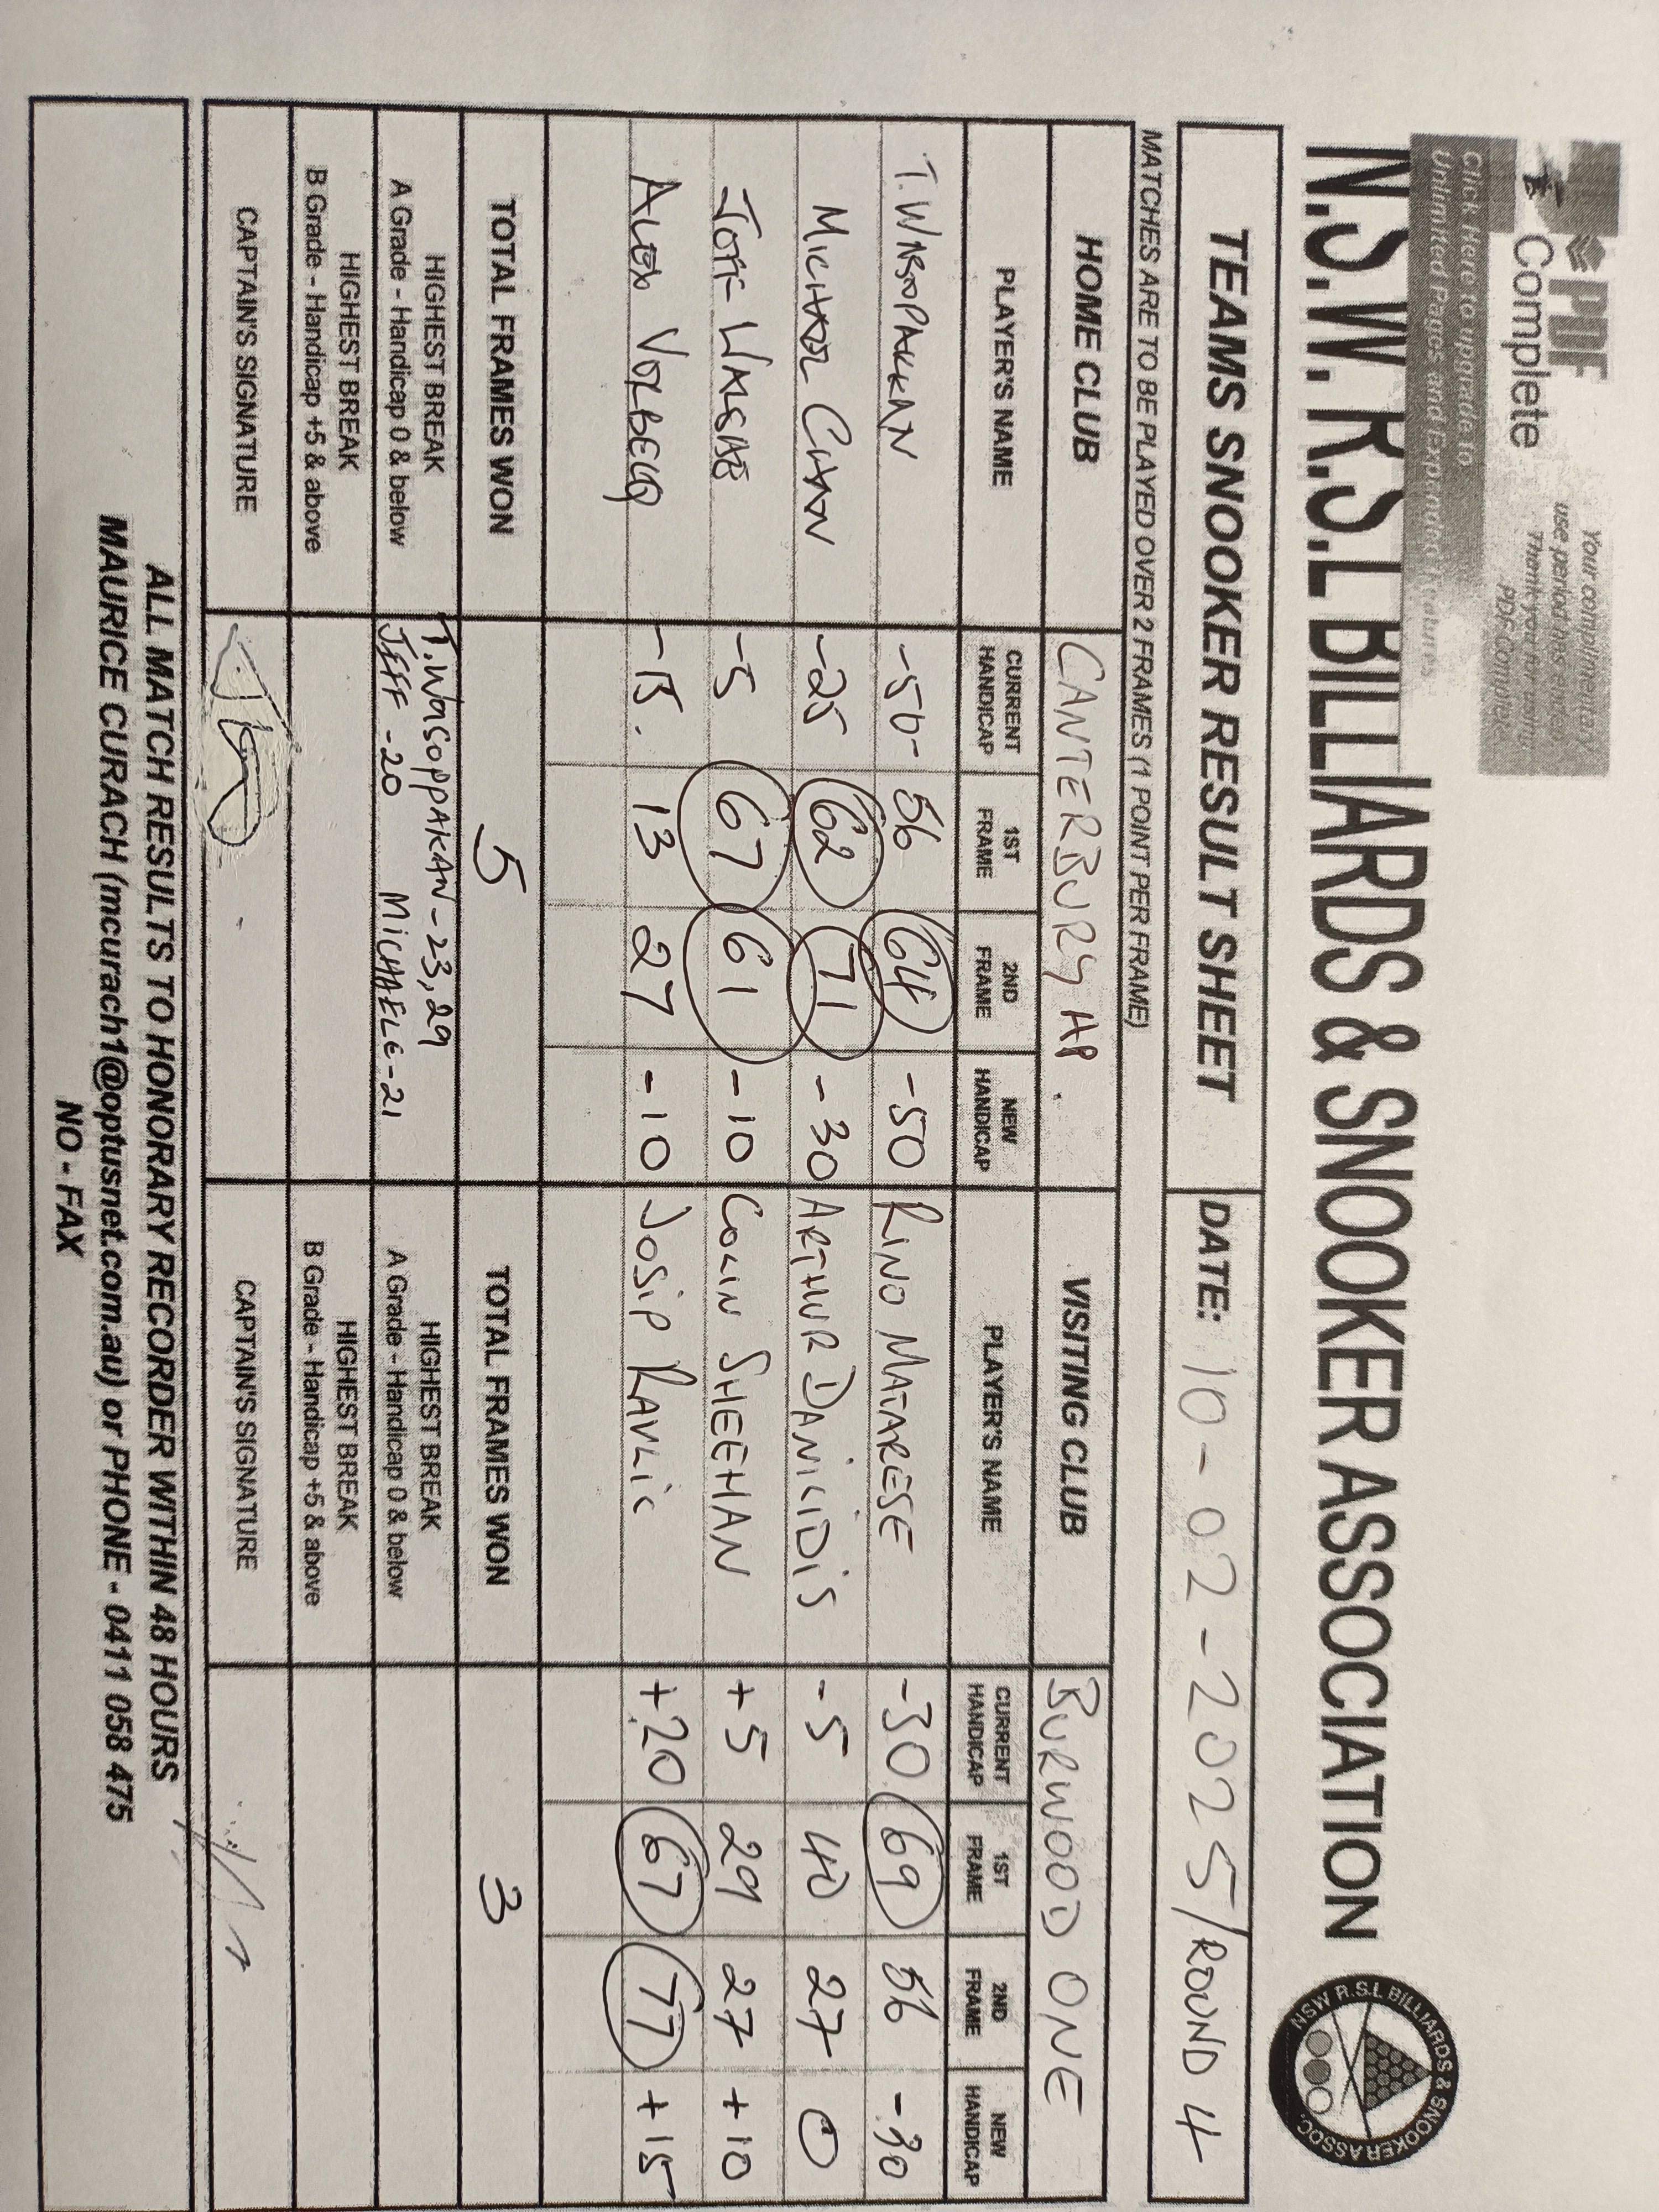 PDF
Complete
Your complimentary
use period has ended.
Thank you for using
PDF Complete.
Click Here to upgrade to
Unlimited Pages and Expanded Features
N.S.W. R.S.L BILLIARDS & SNOOKER ASSOCIATION
NSW R.S.L BILLIARDS & SNOOKER ASSOC.
TEAMS SNOOKER RESULT SHEET DATE: 10-02-2025/ROUND 4
MATCHES ARE TO BE PLAYED OVER 2 FRAMES (1 POINT PER FRAME)
HOME CLUB CANTERBURY HP. VISITING CLUB BURWOOD ONE
PLAYER'S NAME CURRENT HANDICAP 1ST FRAME 2ND FRAME NEW HANDICAP PLAYER'S NAME CURRENT HANDICAP 1ST FRAME 2ND FRAME NEW HANDICAP
T. WASOPAKKAN -50- 56 64 -50 RINO MATARESE -30 69 56 -30
MICHAEL CHAN -25 62 71 -30 ARTHUR DANILIDIS -5 40 27 0
JEFF -5 67 61 -10 COLIN SHEEHAN +5 29 27 +10
ALEX -15. 13 27 -10 JOSIP RAVLIC +20 67 77 +15
TOTAL FRAMES WON 5 TOTAL FRAMES WON 3
HIGHEST BREAK T. WASOPPAKAN-23,29 HIGHEST BREAK
A Grade - Handicap 0 & below JEFF -20 MICHAELE-21 A Grade - Handicap 0 & below
HIGHEST BREAK HIGHEST BREAK
B Grade - Handicap +5 & above B Grade - Handicap +5 & above
CAPTAIN'S SIGNATURE CAPTAIN'S SIGNATURE
ALL MATCH RESULTS TO HONORARY RECORDER WITHIN 48 HOURS
MAURICE CURACH (mcurach1@optusnet.com.au) or PHONE - 0411 058 475
NO - FAX